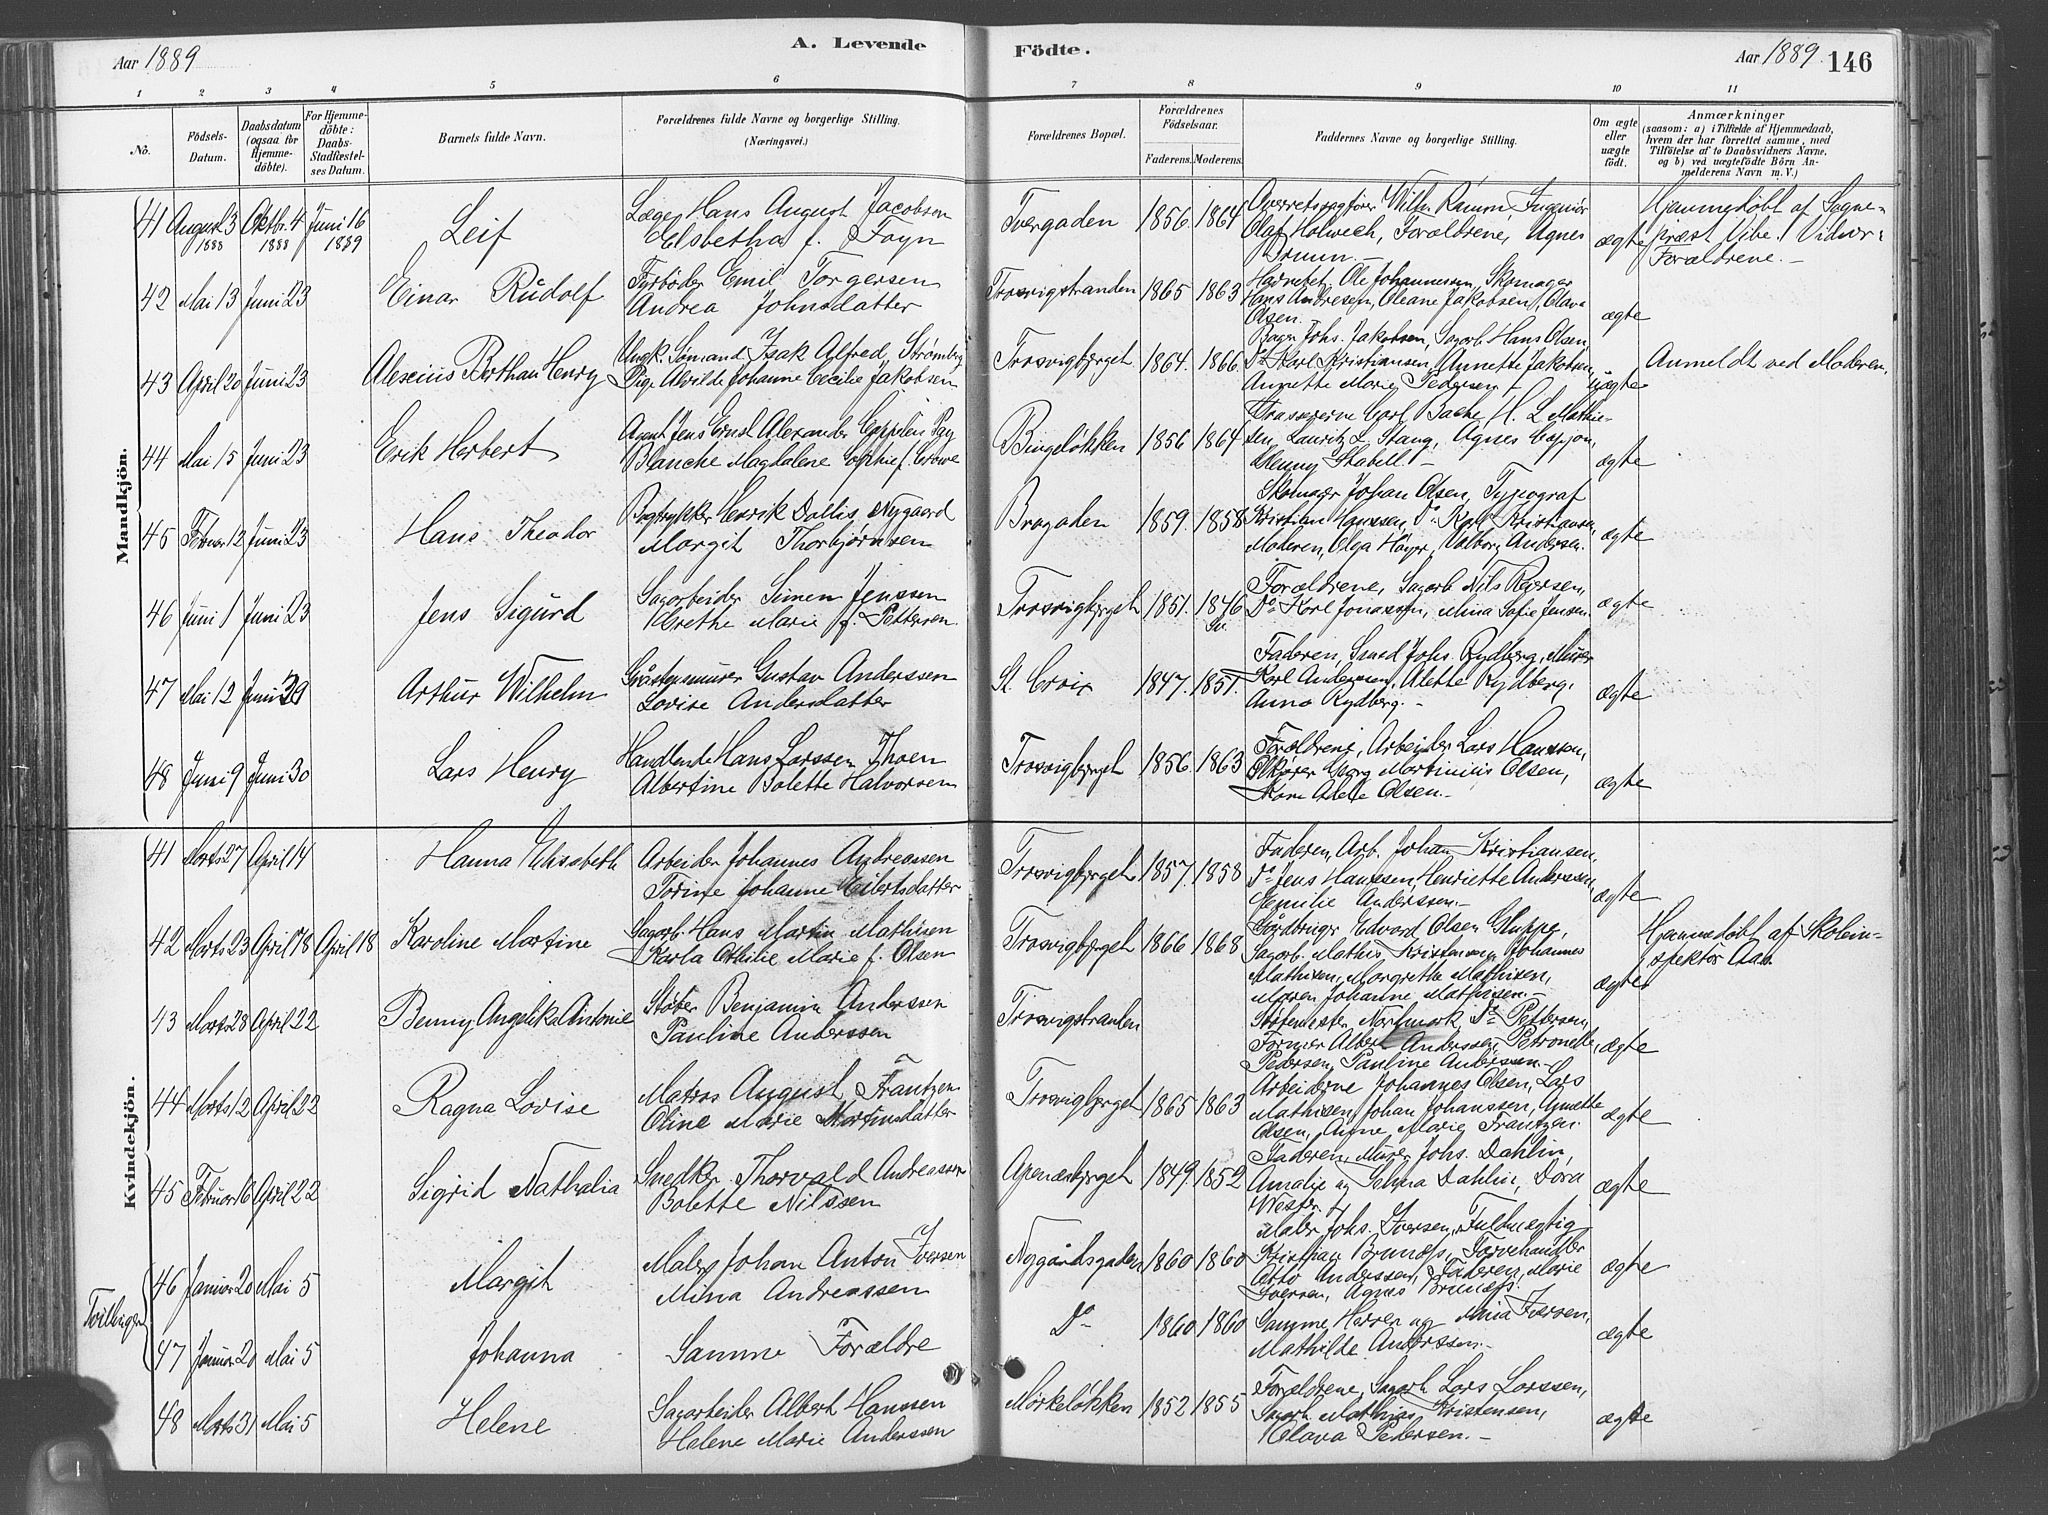 Aar 1889
A. Levende
Födte.
Aar 1889.
146
1 2 3 4 5 6 7 8 9 10 11
No.
Födsels-Datum.
Daabsdatum (ogsaa for Hjemmedöbte).
For Hjemmedöbte: Daabs-Stadfæstelses Datum.
Barnets fulde Navn.
Forældrenes fulde Navne og borgerlige Stilling.
(Næringsvei.)
Forældrenes Bopæl.
Forældrenes Födselsaar.
Faderens. Moderens.
Faddernes Navne og borgerlige Stilling.
Om ægte eller uægte födt.
Anmærkninger
(saasom: a) i Tilfælde af Hjemmedaab, hvem der har forrettet samme, med Tilföielse af to Daabsvidners Navne, og b) ved uægtefödte Börn Anmelderens Navn m. V.)
Mandkjön.
41 August 3 1888 Oktbr. 4 1888 Juni 16 1889 Leif
Læge Hans August Jacobsen
Elsbetha f. Foyn
Tvergaden 1856. 1864
Overretssagfører Wilh. Ramm, Ingeniør
Olaf Holwech, Forældrene, Agnes
ægte
Hjemmedøbt af Sogne-
præst Vibe. Vidner:
Forældrene.
42 Mai 13 Juni 23 Einar Rudolf
Fyrbøder Emil Torgersen
Andrea Johnsdatter
Trosvigstranden 1865 1863
Ole Johannessen, Skomager
Hans Andresen, Oleane Jakobsen, Olava
Olsen.
ægte
43 April 20 Juni 23 Alexius Berthau Henry
Ungk. Sømand Isak Alfred Strømberg
Pige Alvilde Johanne Cecilie Jakobsen
Trosvigbjerget 1864. 1866.
Bager Johs. Jakobsen, Sagarb. Hans Olsen,
Do Karl Kristiansen, Annette Jakobsen,
Annette Marie Pedersen
uægte
Anmeldt ved Moderen.
44 Mai 15 Juni 23 Erik Herbert
Agent Jens Ernst Alexander Cappelen Pay
Blanche Magdalene Sophie f. Crowe
Bingeløkken 1856 1864
Carl Bache, H. L. Mathie-
sen, Lauritz L. Stang, Agnes
Henny Stabell.
ægte
45 Februar 12 Juni 23 Hans Theodor
Bogtrykker Henrik Dallis Nygaard
Margit Thorbjørnsen
Brogaden 1859. 1858
Skomager Johan Olsen, Typograf
Kristian Hanssen, Do Karl Kristiansen,
Moderen, Olga Høyer, Valborg Andersen.
ægte
46 Juni 1 Juni 23 Jens Sigurd
Sagarbeider Simen Jenssen
Grethe Marie f. Pettersen
Trosvigbjerget 1851. 1846
Forældrene, Sagarb. Nils Reiersen,
Do Karl Jonassen, Mina Sofie Jensen.
ægte
47 Mai 12 Juni 29 Arthur Wilhelm
Gråstensmurer Gustav Anderssen
Lovise Andersdatter
St. Croix 1847. 1851.
Faderen, Smed Johs. Rydberg, Murer
Karl Andersen, Alette Rydberg,
Anna Rydberg.
ægte
48 Juni 9 Juni 30 Lars Henry
Handlende Hans Larssen Thoen
Albertine Bolette Halvorsen
Trosvigbjerget 1856. 1863
Forældrene, Arbeider Lars Hanssen,
Georg Martinius Olsen,
Adele Olsen.
ægte
Kvindekjön.
41 Marts 27 April 14 Hanna Elisabeth
Arbeider Johannes Andreassen
Trine Johanne Eilertsdatter
Trosvigbjerget 1857. 1858
Faderen, Arb. Johan Kristiansen,
Do Jens Hanssen, Henriette Anderssen,
Emilie Anderssen.
ægte
42 Marts 23 April 18 April 18 Karoline Martine
Sagarb. Hans Martin Mathisen
Karla Othilie Marie f. Olsen
Trosvigbjerget 1866 1868
Gårdbruger Edvard Olsen Gluppe,
Sagarb. Mathis Kristensen, Johannes
Mathisen, Margrethe Mathisen,
Maren Johanne Mathisen.
ægte
Hjemmedøbt af Skolein-
spektør Aas.
43 Marts 28 April 22 Benny Angelika Antonie
Støber Benjamin Anderssen
Pauline Anderssen
Trosvigstranden
Støbemester Nordmark, Do Pettersen,
Former Albert Anderssen, Petronelle
Pedersen, Pauline Anderssen.
ægte
44 Marts 12 April 22 Ragna Lovise
Matros August Frantzen
Oline Marie Martinsdatter
Trosvigbjerget 1865 1863
Arbeiderne Johannes Olsen, Lars
Mathisen, Johan Johanssen, Annette
Olsen, Anne Marie Frantzen.
ægte
45 Februar 16 April 22 Sigrid Nathalia
Snedker Thorvald Andreassen
Bolette Nilssen
Apenæsbjerget 1849. 1852
Faderen, Murer Johs. Dahlin,
Amalie og Selma Dahlin, Dora
Wester
ægte
Tvillinger
46 Januar 20 Mai 5 Margit
Maler Johan Anton Iversen
Mina Andreassen
Nygårdsgaden 1860 1860
Maler Johs. Iversen, Fuldmægtig
Kristian Brunæs, Farvehandler
Otto Anderssen, Faderen, Marie
Iversen, Agnes Brunæs.
ægte
47 Januar 20 Mai 5 Johanna
Samme Forældre
Do 1860 1860
Samme Herrer og Maria Iversen,
Mathilde Anderssen.
ægte
48 Marts 31 Mai 5 Helene
Sagarbeider Albert Hanssen
Helene Marie Anderssen
Mørkeløkken 1852 1855
Forældrene, Sagarb. Lars Larssen,
Sagarb. Mathias Kristensen,
Olava Pedersen.
ægte